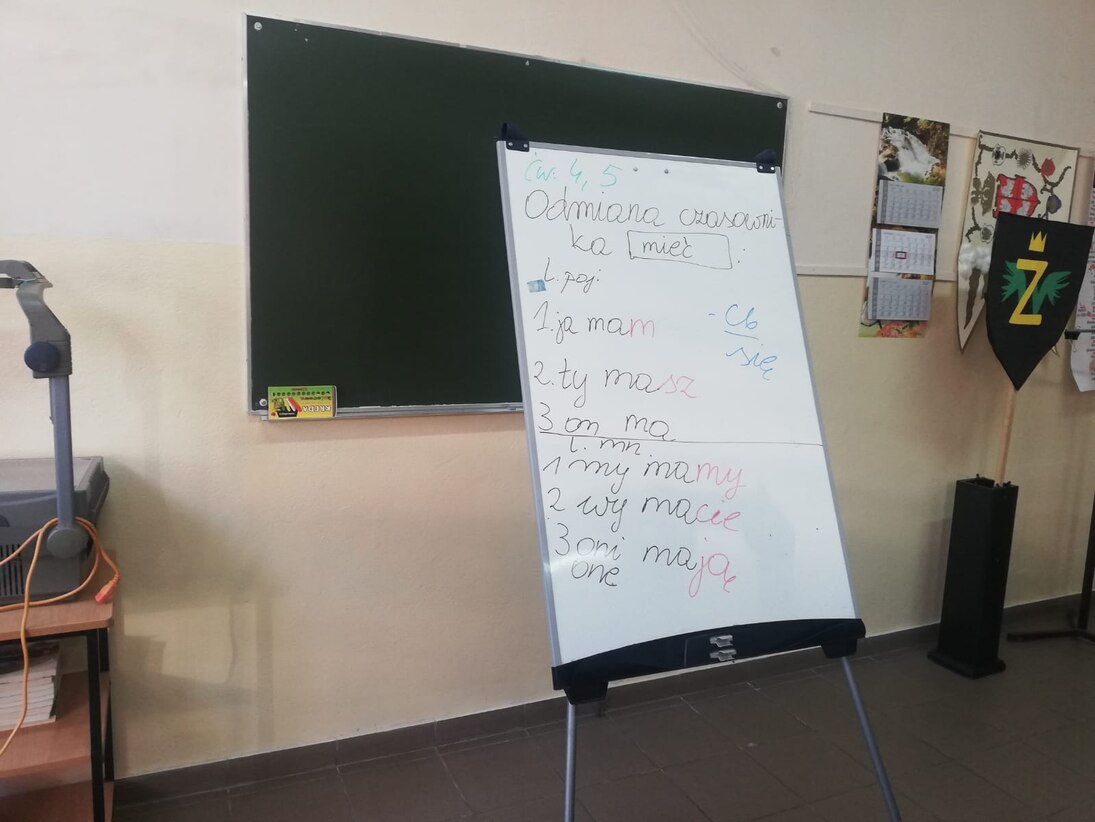 ćw. 4, 5
Odmiana czasowni-
ka mieć :
l. poj.
1. ja mam
2. ty masz
3 on ma
l. mn.
1 my mamy
2 wy macie
3 oni mają
one
- Cb
się
KREDA
Z